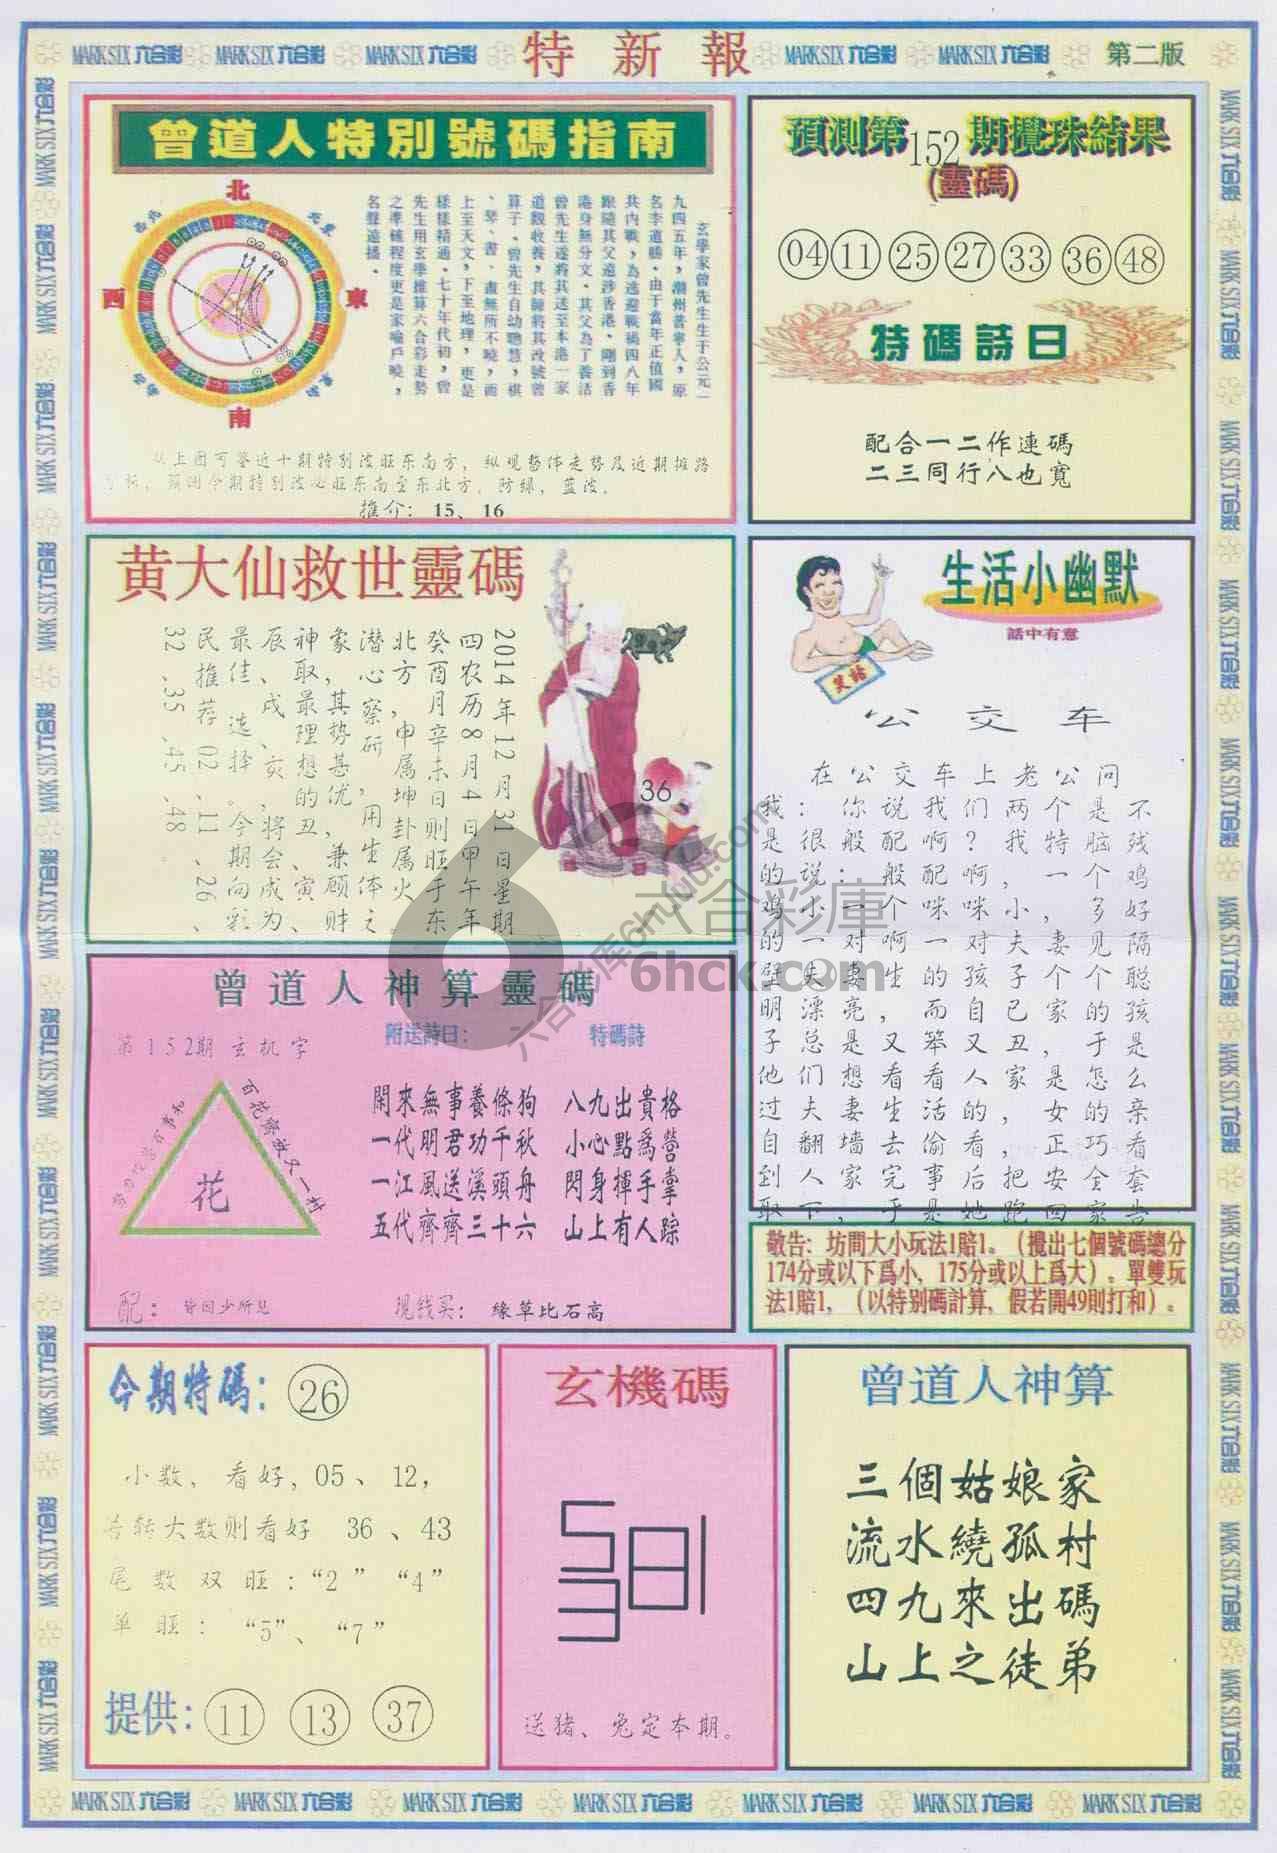 MARK SIX 六合彩 MARK SIX 六合彩 MARK SIX 六合彩 特新報 MARK SIX 六合彩 MARK SIX 六合彩 第二版
曾道人特別號碼指南
北
西
東
南
玄學家曾先生生于公元一
九四五年，潮州普寧人，原
名李道勝。由于當年正值國
共内戰，為逃避戰禍四八年
跟隨其父遠涉香港。剛到香
港身無分文。其父為了養活
曾先生遂將其送至本港一家
道觀收養，其師將其改號曾
算子。曾先生自幼聰慧，棋
、琴、書、畫無所不曉，而
上至天文，下至地理，更是
樣樣精通。七十年代初，曾
先生用玄學推算六合彩走勢
之準確程度更是家喻戶曉，
名聲遠播。
从上图可鉴近十期特别波旺东南方，纵观整体走势及近期摊路
预测今期特别波必旺东南至东北方，防绿，蓝波。
推介：15、16
預測第152期攪珠結果
(靈碼)
04 11 25 27 33 36 48
特碼詩日
配合一二作連碼
二三同行八也寬
黄大仙救世靈碼
2014年12月31日星期
四农历8月4日甲午年
癸酉月辛未日则旺于东
北方，申属坤卦属火
潜心察研，用生体之
象，其势甚优，兼顾财
神取最理想的丑、寅、
辰、戌、亥，将会成为
最佳选择。今期向彩
民推荐02.11、26、
32.35.45.48
36
生活小幽默
話中有意
笑話
公交车
在公交车上老公问
我：你说我们两个是不
是很般配啊？我特脑残
的说：般配啊，一个鸡
鸡小一个咪咪小，多好
的一对啊一对夫妻见隔
壁夫妻生的孩子个个聪
明漂亮，而自己家的孩
子总是又笨又丑，于是
他们想看看人家是怎么
过夫妻生活的，女的亲
自翻墙去偷看，正巧看
到人家完事后把安全套
取下，于是她跑回家告
曾道人神算靈碼
第152期玄机字
百花齊放又一村
花
附送詩曰：
閑來無事養條狗
一代明君功千秋
一江風送溪頭舟
五代齊齊三十六
特碼詩
八九出貴格
小心點爲營
閃身揮手掌
山上有人踪
配：皆因少所见
现钱买：緣草比石高
敬告：坊間大小玩法1賠1。（攪出七個號碼總分
174分或以下爲小，175分或以上爲大）。單雙玩
法1賠1，（以特别碼計算，假若開49則打和）。
今期特碼：26
小数、看好，05、12，
若转大数则看好 36、43
尾数双旺：“2” “4”
单旺：“5”、“7”
提供：11 13 37
玄機碼
送猪、兔定本期。
曾道人神算
三個姑娘家
流水繞孤村
四九來出碼
山上之徒弟
六合彩庫
6hck.com
六合彩库6htuku.com
MARK SIX 六合彩 MARK SIX 六合彩 MARK SIX 六合彩 MARK SIX 六合彩 MARK SIX 六合彩 MARK SIX 六合彩 MARK SIX 六合彩